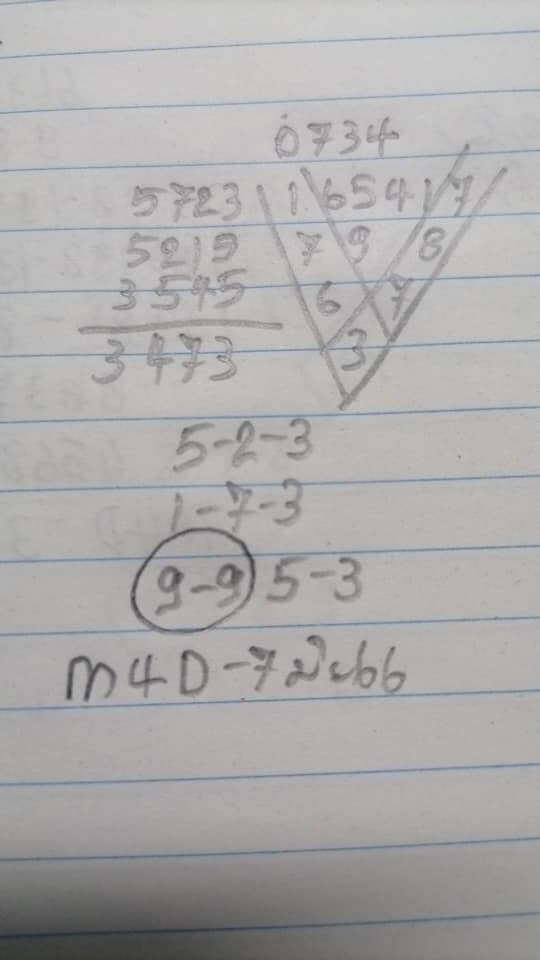 0734
5723 165417
5219 7 9 8
3545 6 7
3473 3
5-2-3
1-7-3
9-9 5-3
M4D-7มีน66